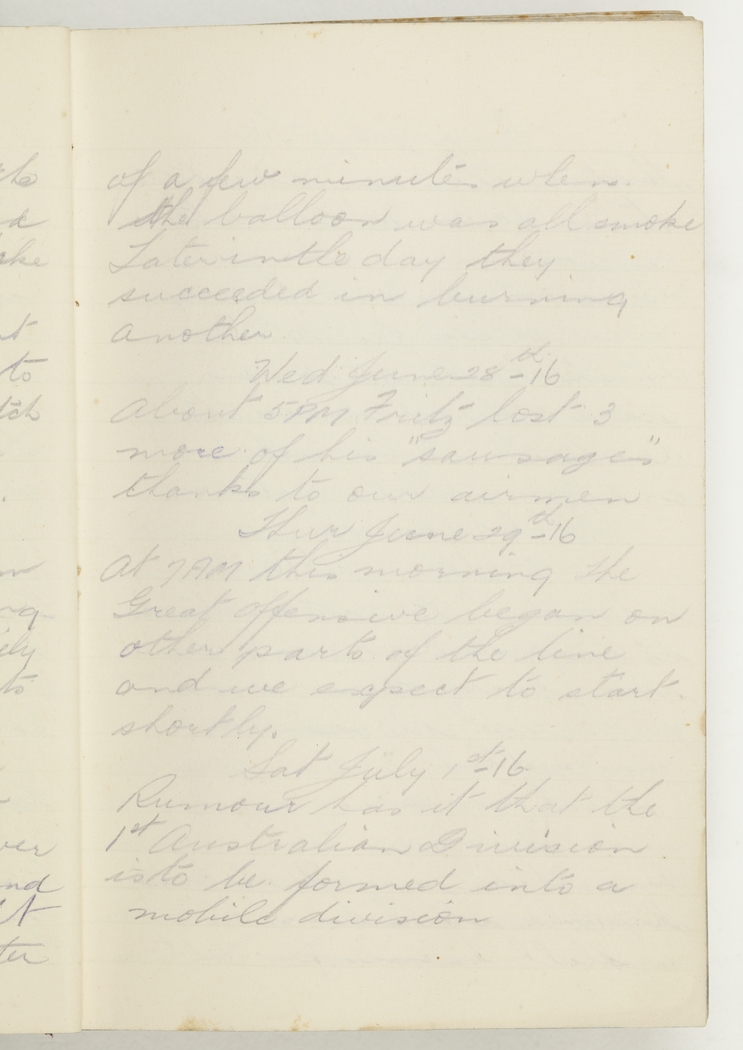 of a few minutes when
the balloon was all smoke
Later in the day they
succeeded in burning
another
Wed June 28th-16
About 5 PM Fritz lost 3
more of his "sausages"
thanks to our airmen
Thur June 29th-16
At 7 AM this morning the
Great offensive began on
other parts of the line
and we expect to start
shortly.
Sat July 1st-16
Rumour has it that the
1st Australian Division
is to be formed into a
mobile division